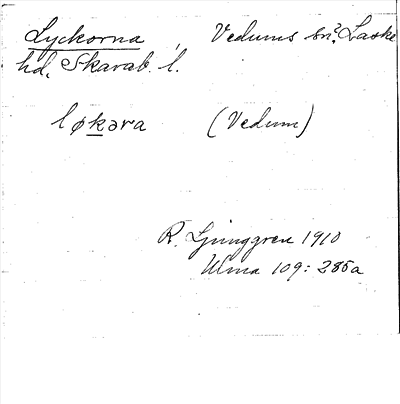 Lyckorna Vedums sn, Laske
hd, Skarab. l.
løkəra (Vedum)
R. Ljunggren 1910
Ulma 109: 285a